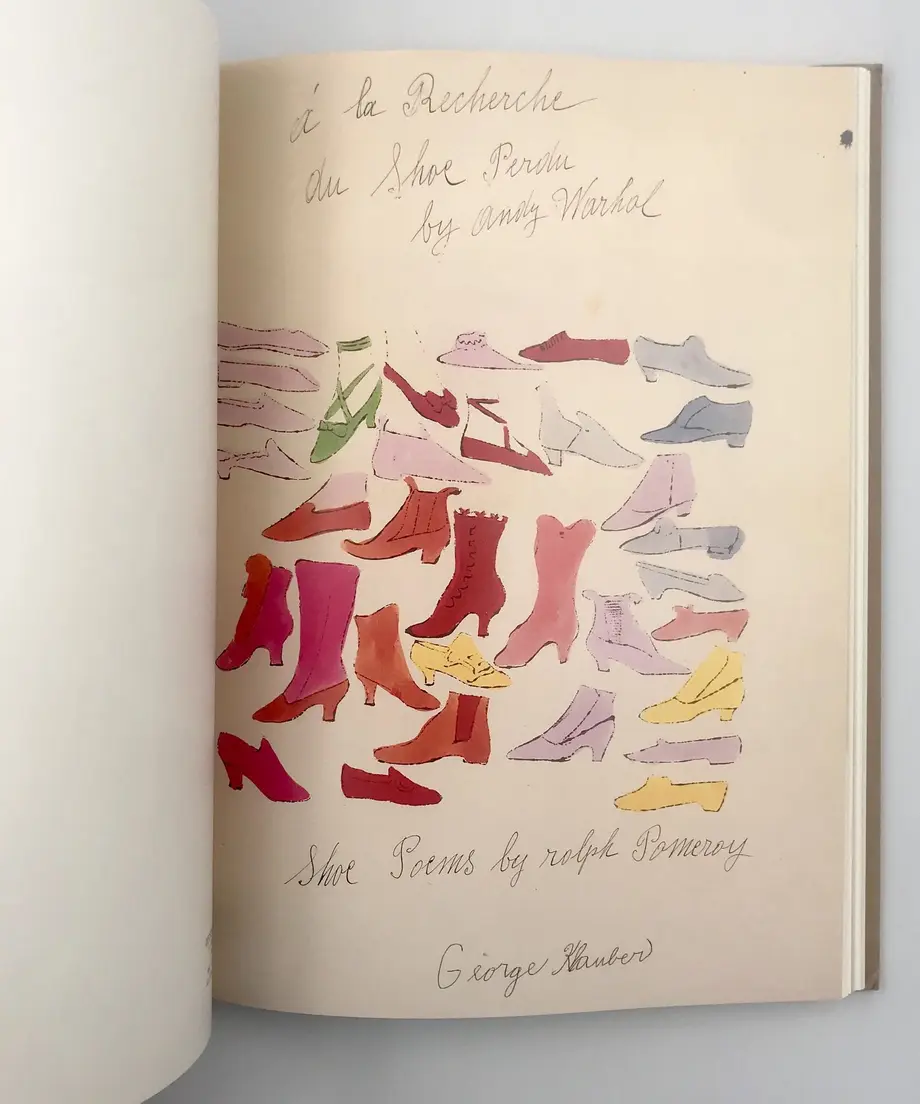 á la Recherche
du Shoe Perdu
by andy Warhol
Shoe Poems by rolph Pomeroy
George Klauber